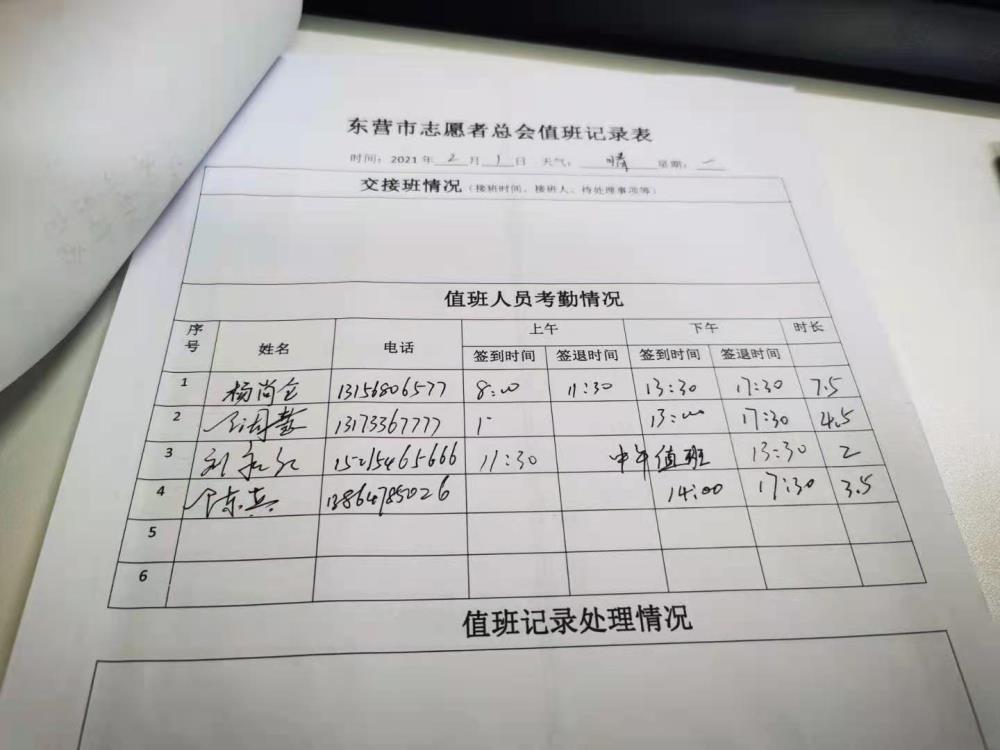 东营市志愿者总会值班记录表
时间：2021年 2 月 1 日 天气： 晴 星期： 一
交接班情况（接班时间、接班人、待处理事项等）
值班人员考勤情况
序号 姓名 电话 上午 下午 时长
签到时间 签退时间 签到时间 签退时间
1 杨尚全 13156806577 8:00 11:30 13:30 17:30 7.5
2 13173367777 13:00 17:30 4.5
3 15215465666 11:30 中午值班 13:30 2
4 13864785026 14:00 17:30 3.5
5
6
值班记录处理情况